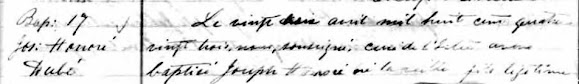 Bap: 17
Le vingt trois avril mil huit cent quatre
Jos: Honoré
vingt trois, nous, soussigné, curé de avons
Dubé
baptisé Joseph Honoré né la veille fils légitime